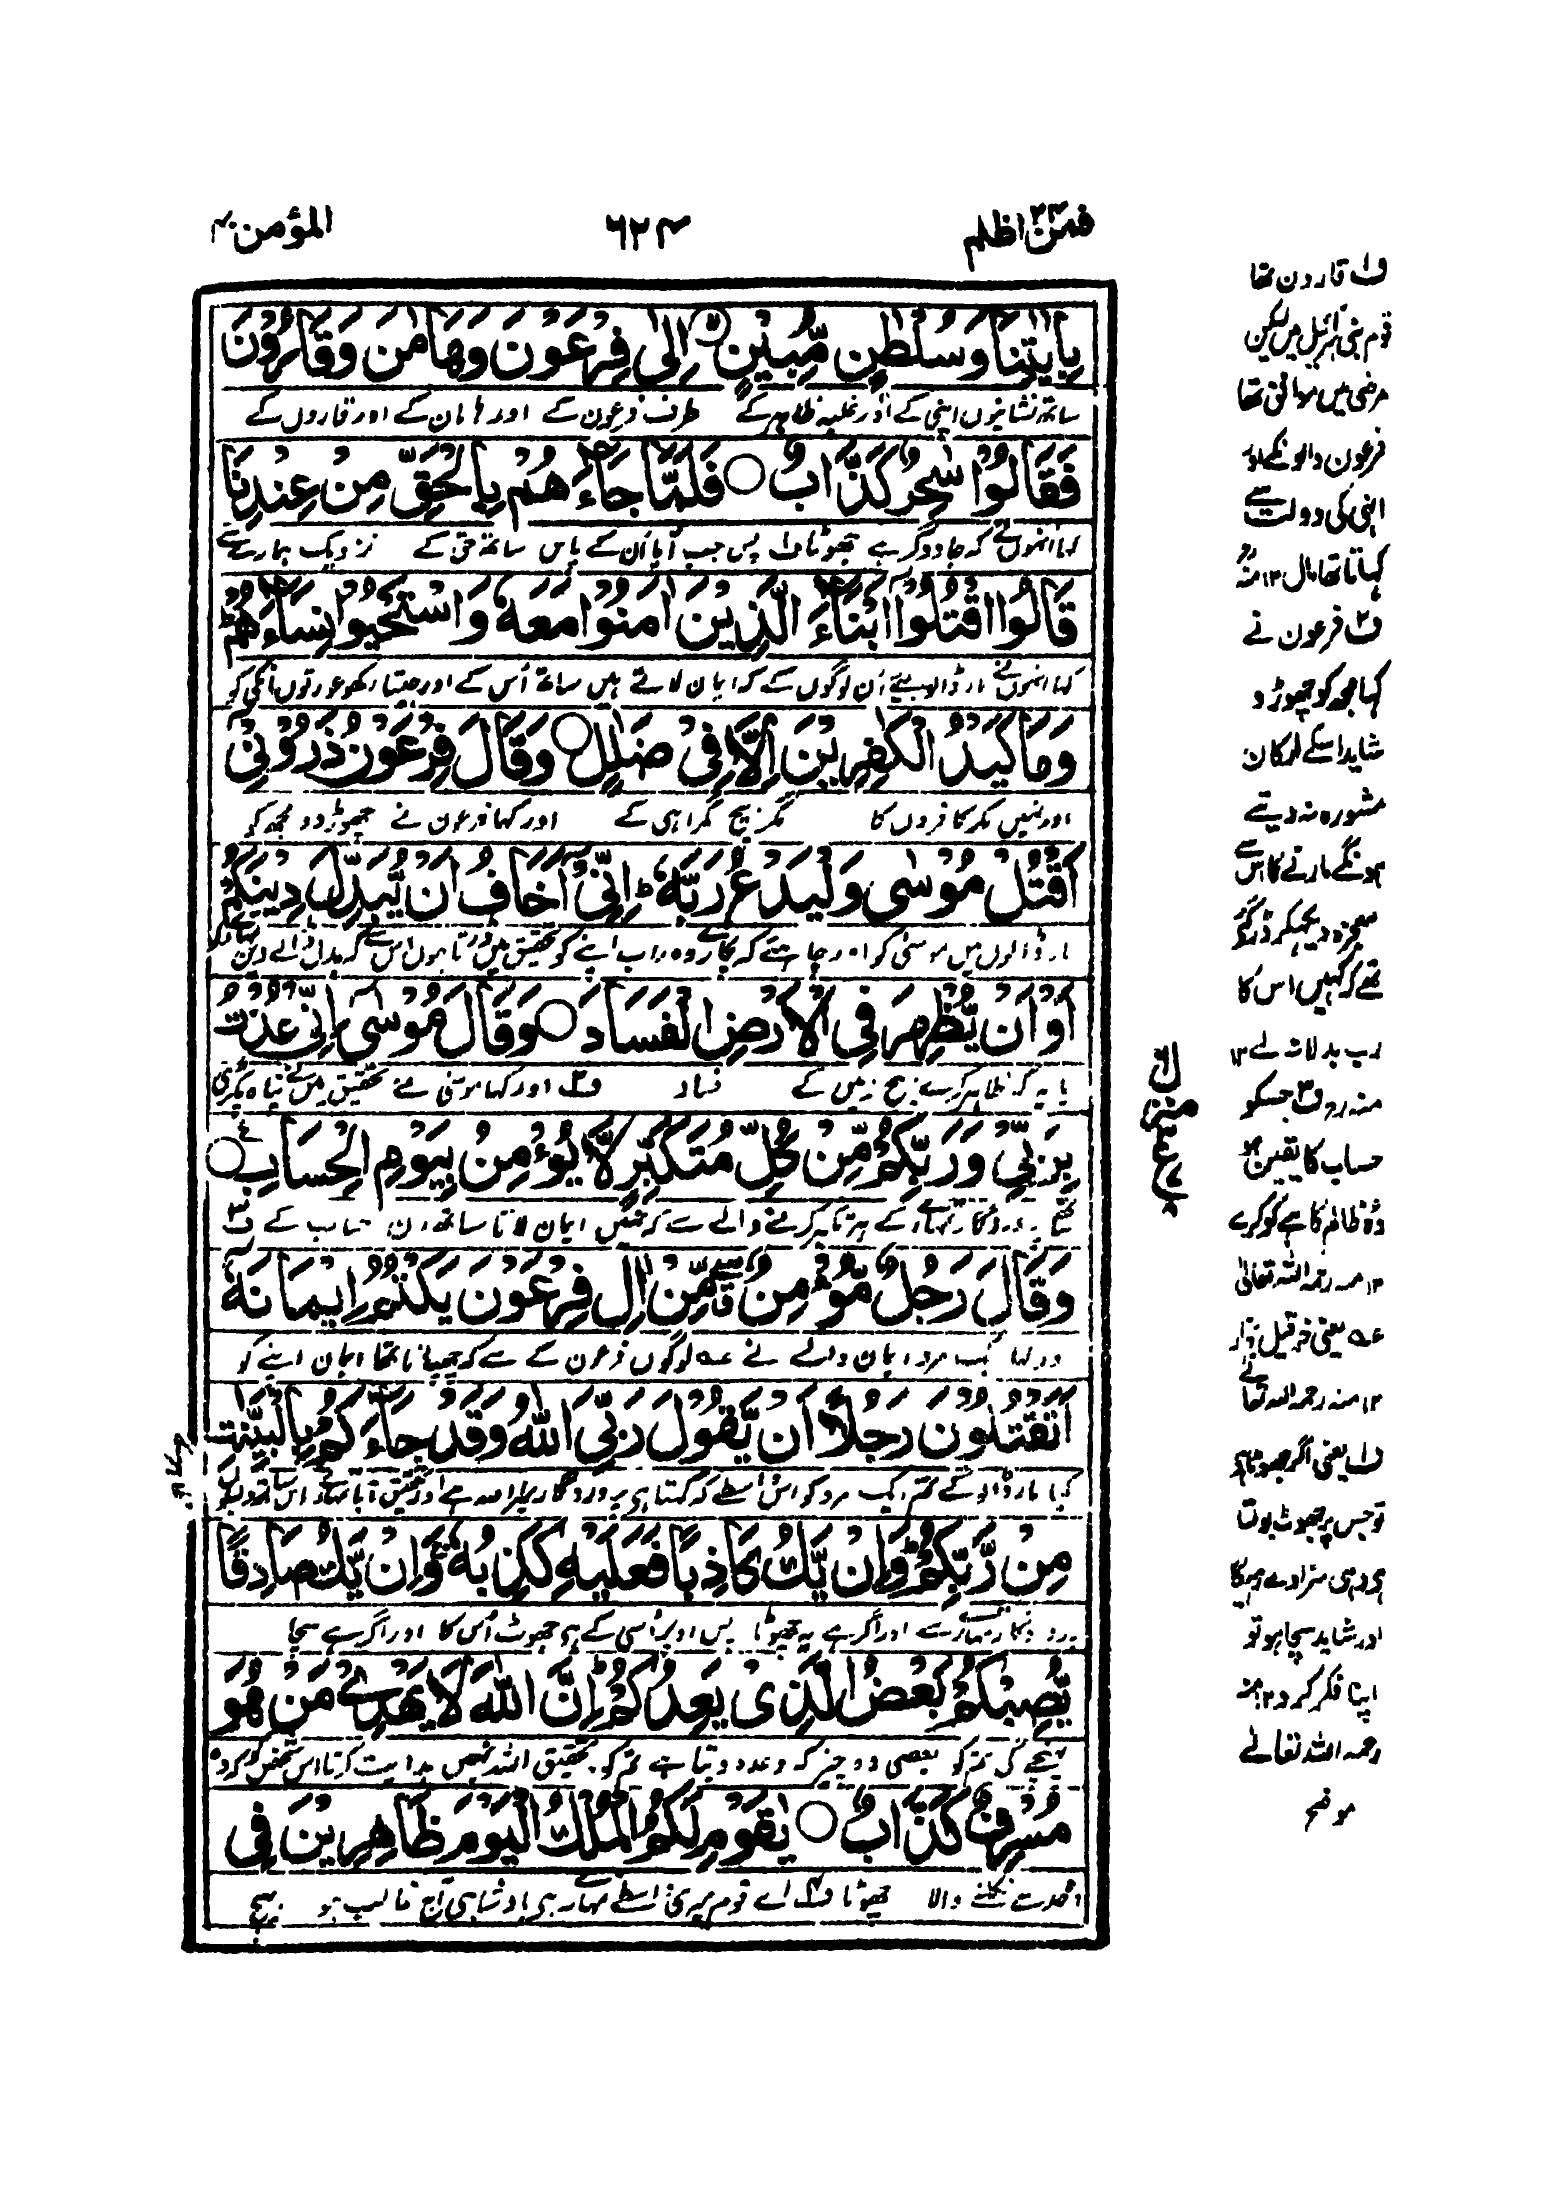 فمن اظلم ٢٤
٦٢٤
المؤمن ٤٠
بِاٰیٰتِنَا وَسُلْطٰنٍ مُّبِیْنٍ اِلٰی فِرْعَوْنَ وَهَامٰنَ وَقَارُوْنَ
ساتھ نشانیوں اپنی کے اور غلبہ ظاہر کے طرف فرعون کے اور ہامان کے اور قاروں کے
فَقَالُوْا سٰحِرٌ كَذَّابٌ فَلَمَّا جَآءَهُمْ بِالْحَقِّ مِنْ عِنْدِنَا
کہا انہوں نے کہ جادوگر ہے جھوٹا ف۱ پس جب آیا اُن کے پاس ساتھ حق کے نزدیک ہمارے سے
قَالُوا اقْتُلُوْٓا اَبْنَآءَ الَّذِیْنَ اٰمَنُوْا مَعَهٗ وَاسْتَحْیُوْا نِسَآءَهُمْ
کہا انہوں نے مار ڈالو بیٹے اُن لوگوں کے کہ ایمان لائے ہیں ساتھ اُس کے اور جیتا رکھو عورتوں اُنکی کو
وَمَا كَیْدُ الْكٰفِرِیْنَ اِلَّا فِیْ ضَلٰلٍ وَقَالَ فِرْعَوْنُ ذَرُوْنِیْٓ
اور نہیں مکر کافروں کا مگر بیچ گمراہی کے اور کہا فرعون نے چھوڑ دو مجھ کو
اَقْتُلْ مُوْسٰی وَلْیَدْعُ رَبَّهٗ اِنِّیْٓ اَخَافُ اَنْ یُّبَدِّلَ دِیْنَكُمْ
مار ڈالوں میں موسیٰ کو اور چاہیئے کہ پکارے وہ رب اپنے کو تحقیق میں ڈرتا ہوں اس سے کہ بدل ڈالے دین تمہارے کو
اَوْ اَنْ یُّظْهِرَ فِی الْاَرْضِ الْفَسَادَ وَقَالَ مُوْسٰٓی اِنِّیْ عُذْتُ
یا یہ کہ ظاہر کرے بیچ زمین کے فساد ف۲ اور کہا موسیٰ نے تحقیق میں نے پناہ پکڑی
بِرَبِّیْ وَرَبِّكُمْ مِّنْ كُلِّ مُتَكَبِّرٍ لَّا یُؤْمِنُ بِیَوْمِ الْحِسَابِ
ہر تکبر کرنے والے سے کہ نہیں ایمان لاتا ساتھ دن حساب کے ف۳
وَقَالَ رَجُلٌ مُّؤْمِنٌ مِّنْ اٰلِ فِرْعَوْنَ یَكْتُمُ اِیْمَانَهٗٓ
اور کہا ایک مرد ایمان والے نے عہ لوگوں فرعون کے سے کہ چھپاتا تھا ایمان اپنے کو
اَتَقْتُلُوْنَ رَجُلًا اَنْ یَّقُوْلَ رَبِّیَ اللّٰهُ وَقَدْ جَآءَكُمْ بِالْبَیِّنٰتِ
کیا مار ڈالو گے تم ایک مرد کو اس واسطے کہ کہتا ہی پروردگار میرا اللہ ہے اور تحقیق آیا تمہارے پاس ساتھ دلیلوں
مِنْ رَّبِّكُمْ وَاِنْ یَّكُ كَاذِبًا فَعَلَیْهِ كَذِبُهٗ وَاِنْ یَّكُ صَادِقًا
پروردگار تمہارے سے اور اگر ہے یہ جھوٹا پس اوپر اُسی کے ہی جھوٹ اُس کا اور اگر ہے سچا
یُّصِبْكُمْ بَعْضُ الَّذِیْ یَعِدُكُمْ اِنَّ اللّٰهَ لَا یَهْدِیْ مَنْ هُوَ
پہنچے گی تم کو بعضی وہ چیز کہ وعدہ دیتا ہے تم کو تحقیق اللہ نہیں ہدایت کرتا اس شخص کو کہ وہ
مُسْرِفٌ كَذَّابٌ یٰقَوْمِ لَكُمُ الْمُلْكُ الْیَوْمَ ظَاهِرِیْنَ فِی
حد سے نکلنے والا جھوٹا ف۴ اے قوم میری واسطے تمہارے ہی بادشاہی آج غالب ہو بیچ
ف۱ قارون تھا
قوم بنی اسرائیل میں لیکن
مرضی میں موافق تھا
فرعون والونکے اور
اپنی کی دولت سے
کہاتا تھا مال ۱۲ منہ
ف۲ فرعون نے
کہا مجھ کو چھوڑو
شاید اسکے ارکان
مشورہ نہ دیتے
ہونگے مارنے کا اس سے
معجزہ دیکھکر ڈر گئے
تھے کہ کہیں اس کا
رب بدلا نہ لے ۱۲
منہ رو ف۳ جسکو
حساب کا یقین ہو
وُہ ظالم کا ہے کو کرے
۱۲ منہ رحمہ اللہ تعالیٰ
عہ یعنی خرقیل
۱۲ منہ رحمہ اللہ تعالے
ف۴ یعنی اگر جھوٹا ہی
تو جس پر جھوٹ بولتا
ہی وہی سزا دے رہیگا
اور شاید سچا ہو تو
اپنا فکر کرو ۱۲ منہ
رحمہ اللہ تعالے
موضح
منزل ٦